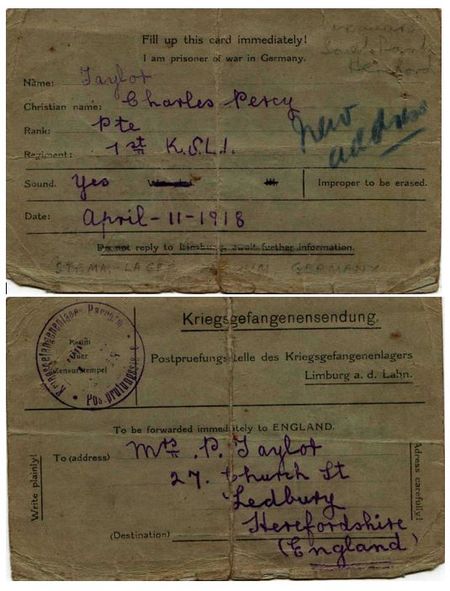 Fill up this card immediately!
I am prisoner of war in Germany.
Name: Taylor
Christian name: Charles Percy
Rank: Pte
Regiment: 1st K.S.L.I.
New address
Sound. Yes Improper to be erased.
Date: April-11-1918
Do not reply to Limburg, await further information.
GERMANY
Kriegsgefangenensendung.
Kriegsgefangenenlager Parchim
Postprüfungsstelle
Postpruefungsstelle des Kriegsgefangenenlagers
Limburg a. d. Lahn.
To be forwarded immediately to ENGLAND.
Write plainly!
To (address) Mrs P. Taylor
27. Church St
Ledbury
Herefordshire
(Destination) (England)
Adress carefully!